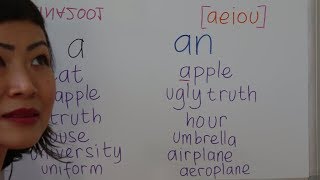 [aeiou]
a an
cat apple
apple ugly truth
truth hour
ouse umbrella
university airplane
uniform aeroplane